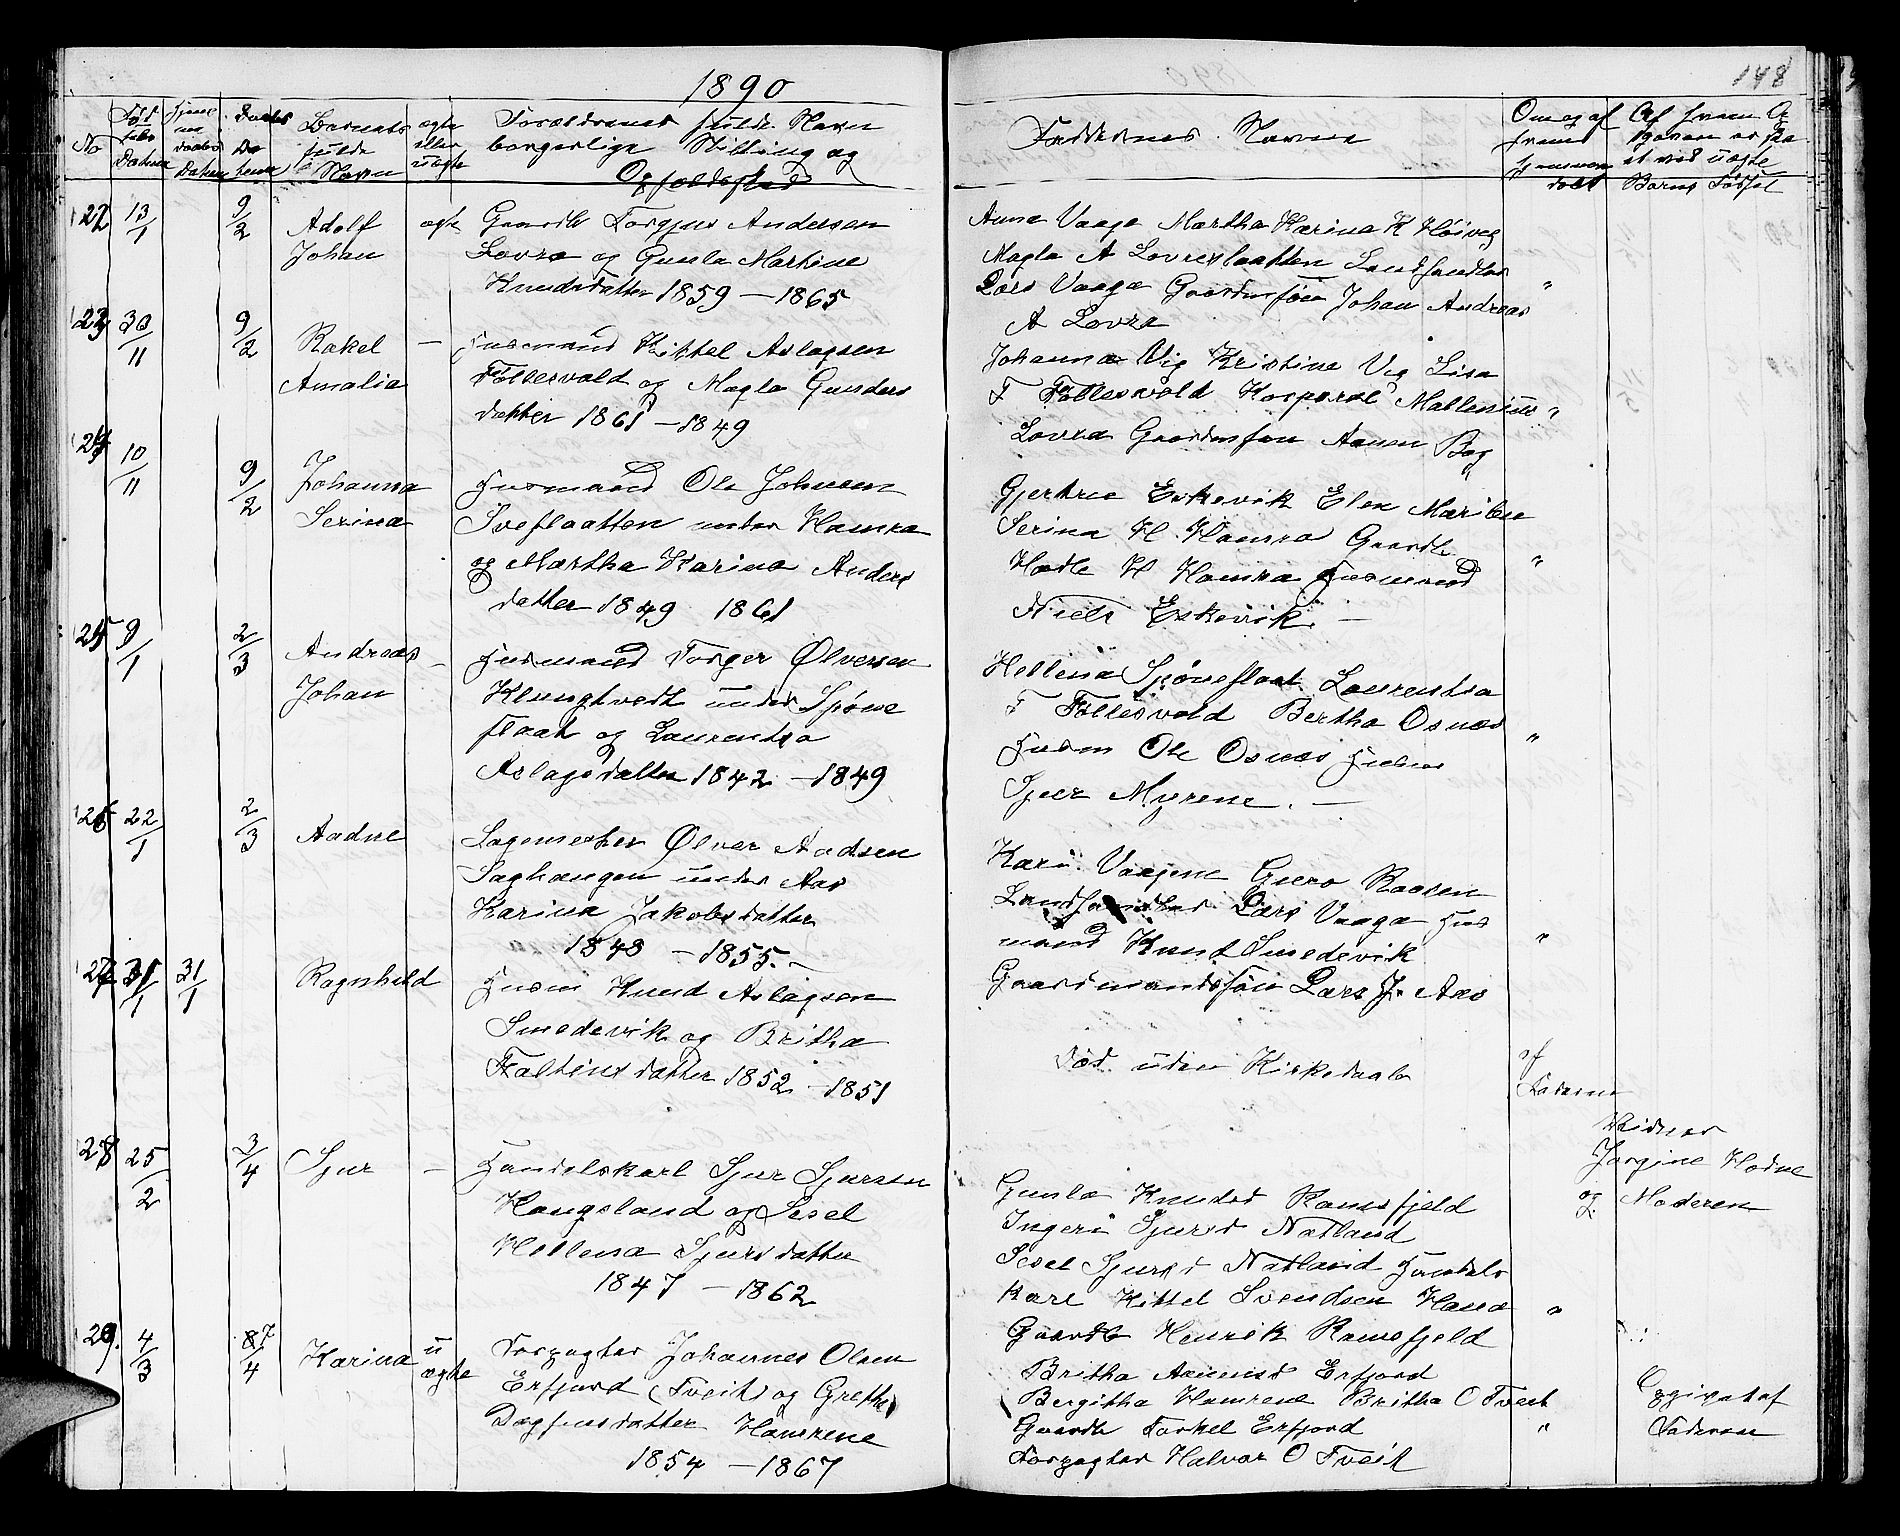 1890
148
No
Født
Datum
Hjemme
daabs
Datum
Daabs
Da
tum
Barnets
fulde
Navn
ægte
eller
uægte
Forældrenes fulde Navn
borgerlige Stilling og
Opholdssted
Faddernes Navne
Om og af
hvem
hjemme
døbt
Af hvem
er
et ved uægte
Barns Fødsel
22 13/1 9/2 Adolf ægte Gaardb Torgjus Andersen
Johan Lovra og Gunla Martine
Knudsdatter 1859 – 1865
Anna Vaage Martha Karina K Høiveg
Magla A Lovreslaatten Landhandler
Lars Vaage Gaardmsøn Johan Andreas "
A Lovra
23 30/11 9/2 Rakel – Husmand Kittel Aslagsen
Amalia Følles­vold og Magla Gunders
datter 1861 – 1849
Johanna Vig Kristine Vig Lisa
T Føllesvold Korporal Mallenius "
Lovra Gaardmsøn Aanen Bog
24 10/11 9/2 Johanna Husmand Ole Johnsen
Serina Sveslaatten under Hamra
og Martha Karina Anders
datter 1849 1861
Gjertrud Eskevik Elen Maribue
Serina H Hamra Gaardb
Hadle H Hamra Husmand "
Niels Eskevik –
25 9/1 2/3 Andreas – Husmand Torger Ølversen
Johan Klungtvedt under Spøne
flaat og Laurentsa
Aslagsdatter 1842 – 1849
Hellena Spøneflaat Laurentsa
T Føllesvold Bertha Osnes
Husm Ole Osnes Husm "
Sjur Myrene. –
26 22/1 2/3 Aadne Sagmester Ølver Aadsen
Saghaugen under Aas
Karina Jakobsdatter
1848 – 1855. –
Kari Vaagene Guro Raasen
Landhandler Lars Vaage Hus
mand Knut Smedevik "
Gaardmandssøn Lars J. Aas
27 31/1 31/1 Ragnhild Husm Knud Aslagsen
Smedevik og Britha
Faltinsdatter 1852 – 1851
Død uden Kirkedaab
af
Faderen
28 25/2 3/4 Sjur – Handelskarl Sjur Sjursen
Haugsland og Sesel
Hellena Sjursdatter
1847 – 1862
Gunla Knudsd Ramsfjeld
Ingeri Sjursd Natland
Sesel Sjursd Natland Handels
karl Kittel Svendsen Hana "
Gaardb Henrik Ramsfjeld
Jorgine Hodne
og Moderen
29. 4/3 87/4 Karina u Forpagter Johannes Olsen
ægte Erfjord (Tveit) og Grethe
Dagfinsdatter Hamrene
1854 – 1867
Britha Aanensd Erfjord
Bergitha Hamrene Britha O Tveit
Gaardb Torkel Erfjord "
Forpagter Halvor O Tveit
Opgivet af
Faderen